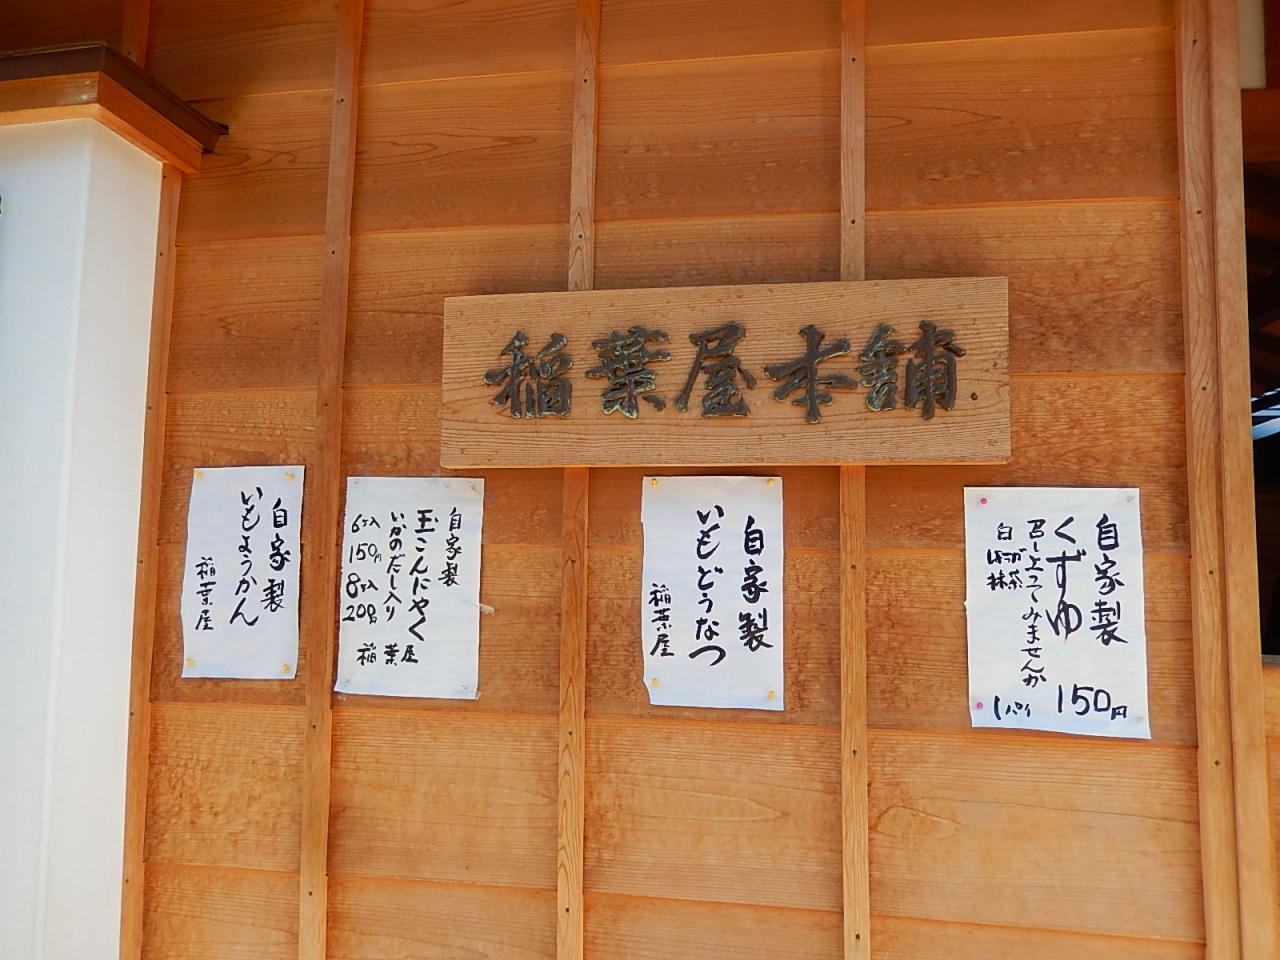 稲葉屋本舗
自家製
くずゆ
召し上ってみませんか
白
しょうが
抹茶
150円
1パイ
自家製
いもどうなつ
稲葉屋
自家製
玉こんにやく
いかのだし入り
6ヶ入
150円
8ヶ入
200円
稲葉屋
自家製
いもようかん
稲葉屋